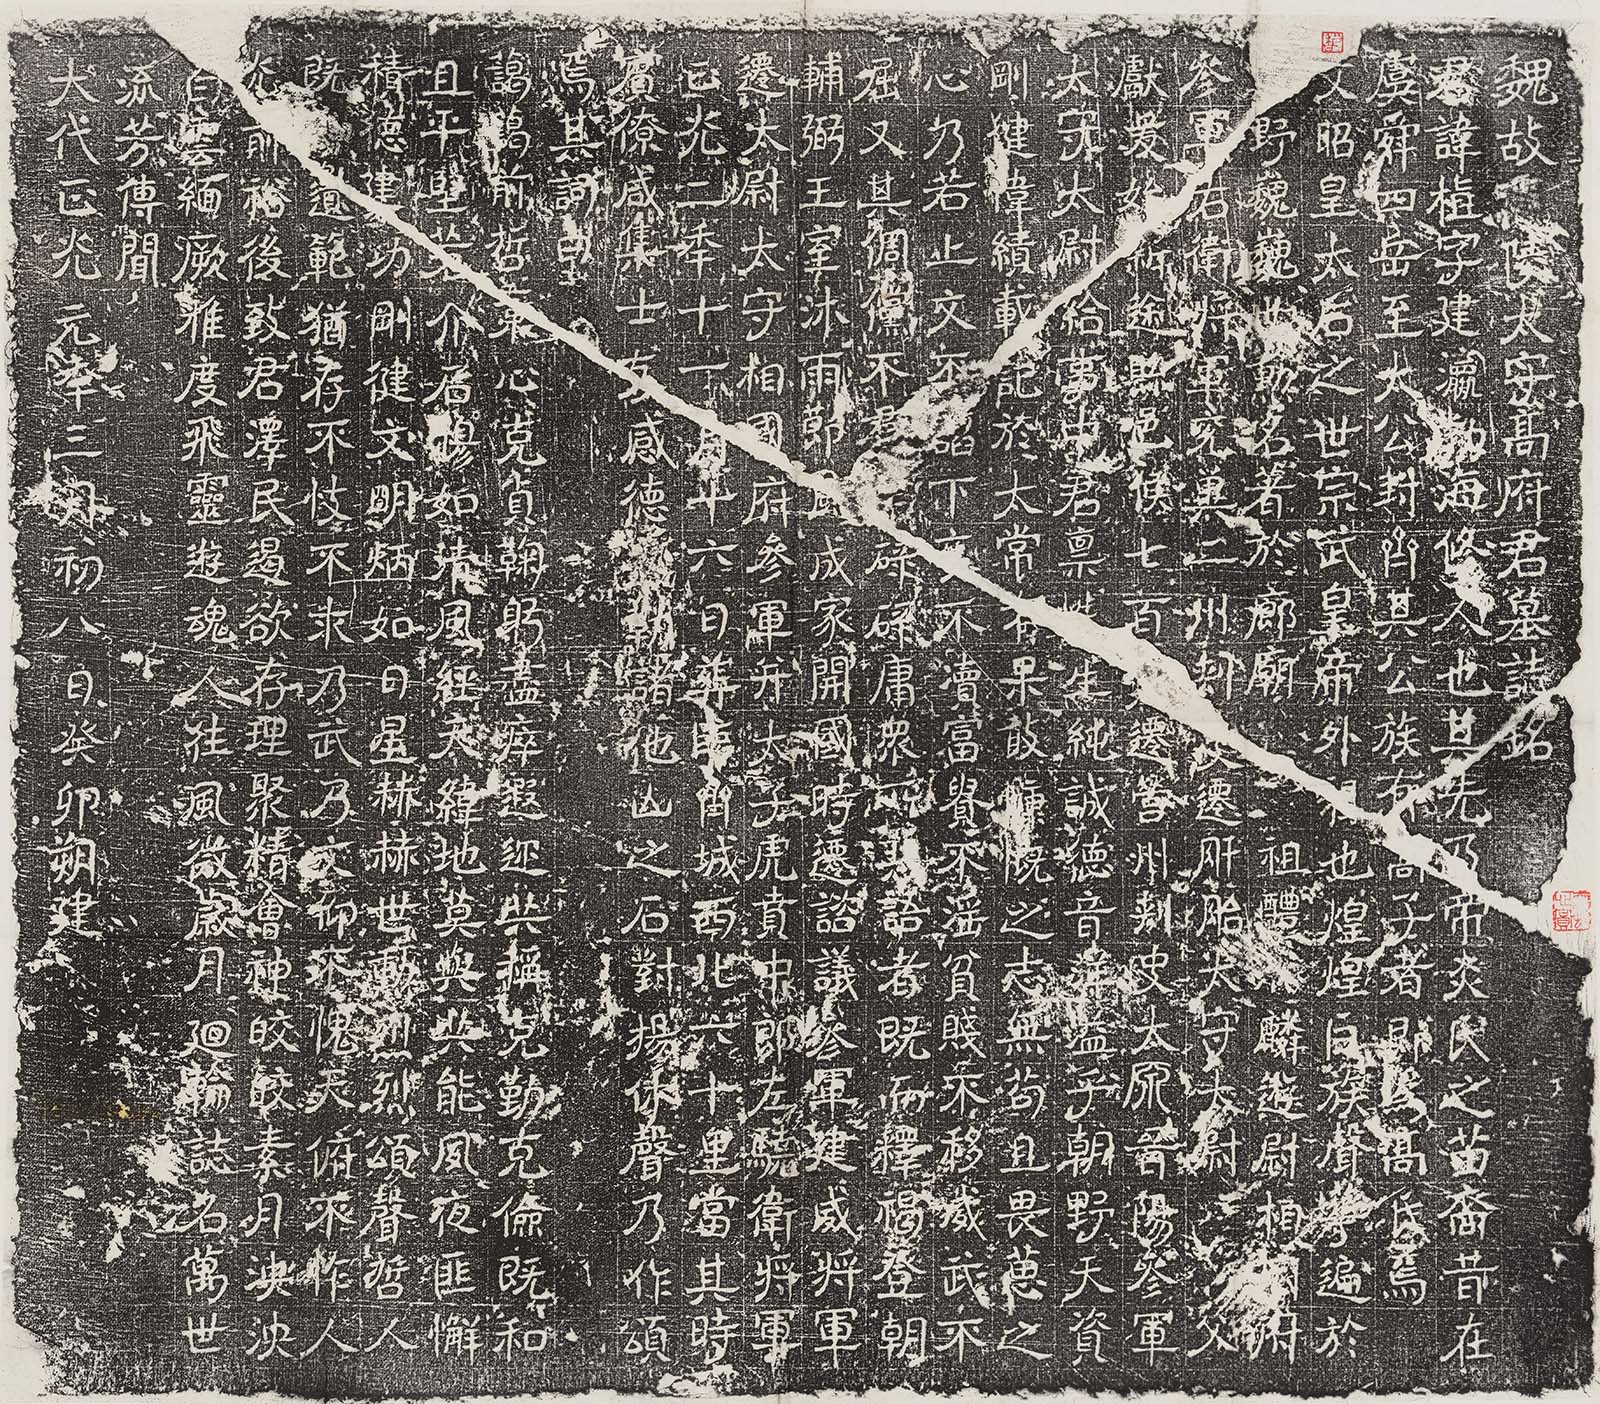 魏故侯太安高府君墓誌銘
君諱植字建瀛勃海脩人也其先乃帝炎氏之苗裔昔在
虞舜四岳至太公封齊其公族有高子者即為高氏焉
文昭皇太后之世宗武皇帝外祖也煌煌百族聲芳遍於
野巍巍世勛名著於廊廟祖麟遊尉相府
參軍君衛將軍兗冀二州刺史遷肝胎太守太尉公
獻爰始新塗邑侯七百遷營州刺史太原晉陽參軍
太守太尉給事中君稟性生純誠德音益乎朝野天資
剛健偉績載記於太常有果敢慷慨之志無苟且畏葸之
心乃若止文不諂下交不瀆富貴不淫貧賤不移威武不
屈又其倜儻不君碌碌庸眾所語者既而釋褐登朝
輔弼王室沐雨節風成家開國時遷諮議參軍建威將軍
遷太尉太守相國府參軍升太子虎賁中郎左驍衛將軍
正光二年十一月十六日葬城西北六十里當其時
屬僚咸集士友感德勒諸他山之石對揚休聲乃作頌
焉其詞曰
藹藹前哲心克貞鞠躬盡瘁遐迩共稱克勤克儉既和
且平堅介眉揚如清風經天緯地莫與共能夙夜匪懈
積德建功剛健文明炳如日星赫赫世勳烈烈頌聲哲人
既遺範猶存不忮不求乃武乃文仰不愧天俯不怍人
光前裕後致君澤民遏欲存理聚精會神皎皎素月泱泱
白雲緬厥雅度飛靈遊魂人往風微歲月迴輪誌名萬世
流芳傳聞
大代正光元年三月初八日癸卯朔建